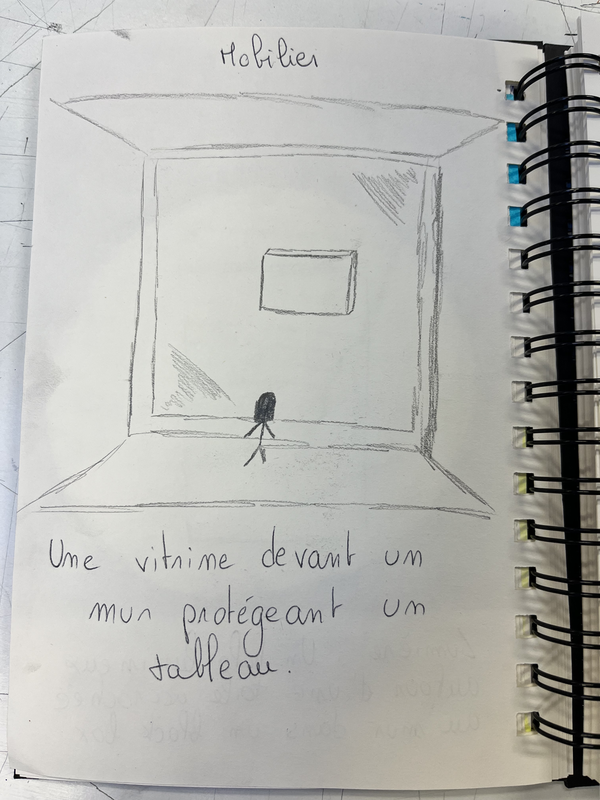 Mobilier
Une vitrine devant un
mur protégeant un
tableau.